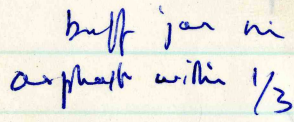 buff jar in
asphalt within 1/3